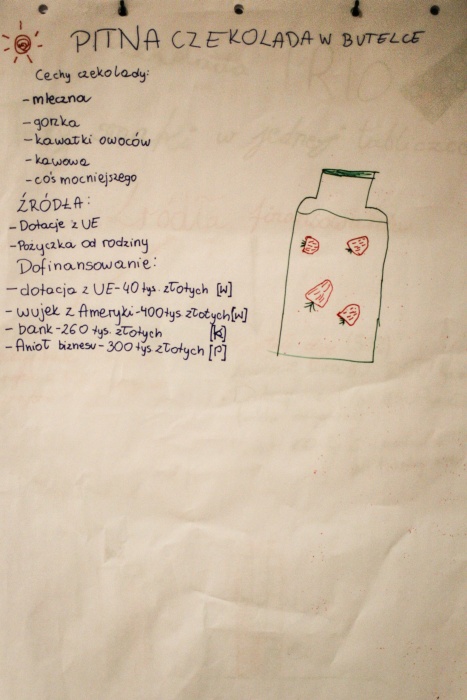 PITNA CZEKOLADA W BUTELCE
Cechy czekolady:
- mleczna
- gorzka
- kawałki owoców
- kawowa
- coś mocniejszego
ŹRÓDŁA:
- Dotacje z UE
- Pożyczka od rodziny
Dofinansowanie:
- dotacja z UE - 40 tys. złotych [W]
- wujek z Ameryki - 400 tys złotych [W]
- bank - 260 tys. złotych [K]
- Anioł biznesu - 300 tys złotych [P]
TRIO